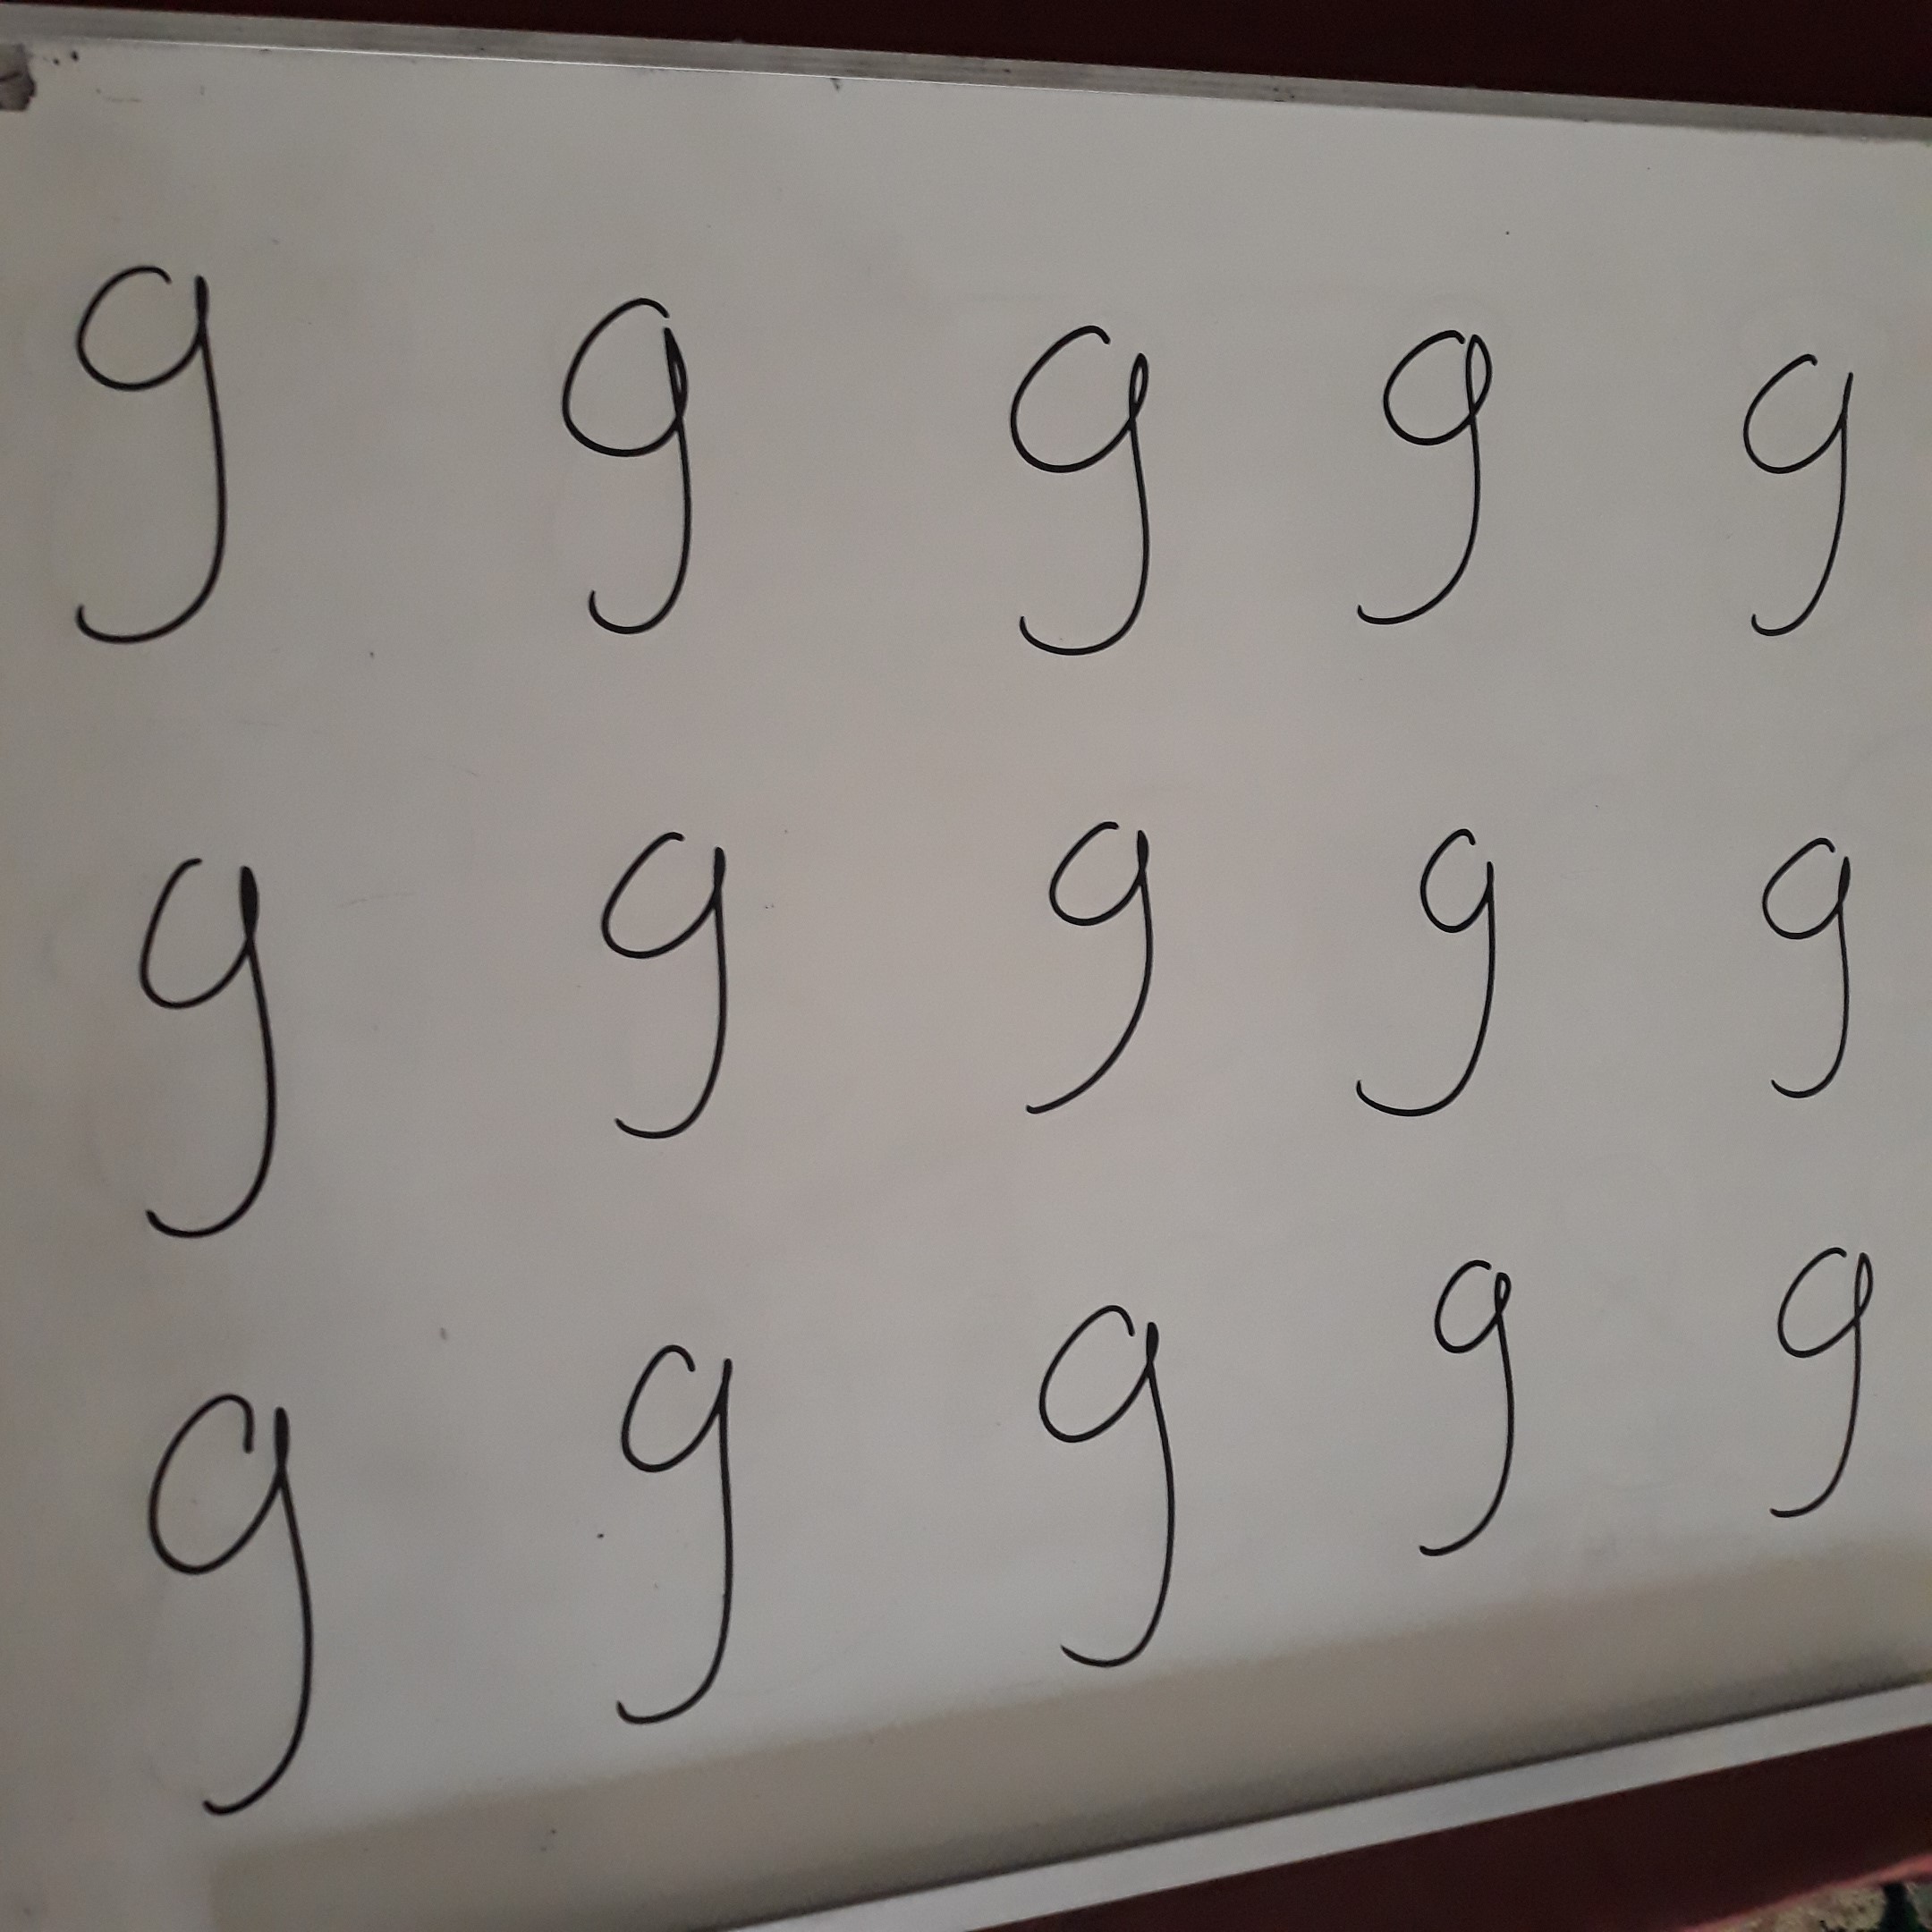 g g g g g
g g g g g
g g g g g